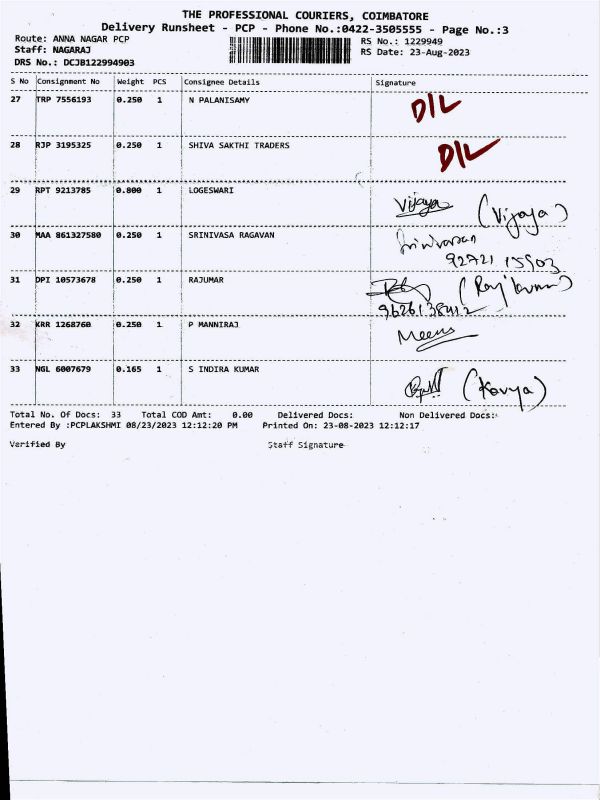 THE PROFESSIONAL COURIERS, COIMBATORE
Delivery Runsheet - PCP - Phone No.:0422-3505555 - Page No.:3
Route: ANNA NAGAR PCP
RS No.: 1229949
Staff: NAGARAJ
RS Date: 23-Aug-2023
DRS No.: DCJB122994903
S No Consignment No Weight PCS Consignee Details Signature
27 TRP 7556193 0.250 1 N PALANISAMY D/L
28 RJP 3195325 0.250 1 SHIVA SAKTHI TRADERS D/L
29 RPT 9213785 0.800 1 LOGESWARI Vijaya (Vijaya)
30 MAA 861327580 0.250 1 SRINIVASA RAGAVAN Srinivasan
92721 15903
31 DPI 10573678 0.250 1 RAJUMAR (Raj kumar)
32 KRR 1268760 0.250 1 P MANNIRAJ Meena
33 NGL 6007679 0.165 1 S INDIRA KUMAR (Kavya)
Total No. Of Docs: 33 Total COD Amt: 0.00 Delivered Docs: Non Delivered Docs:
Entered By :PCPLAKSHMI 08/23/2023 12:12:20 PM Printed On: 23-08-2023 12:12:17
Verified By Staff Signature